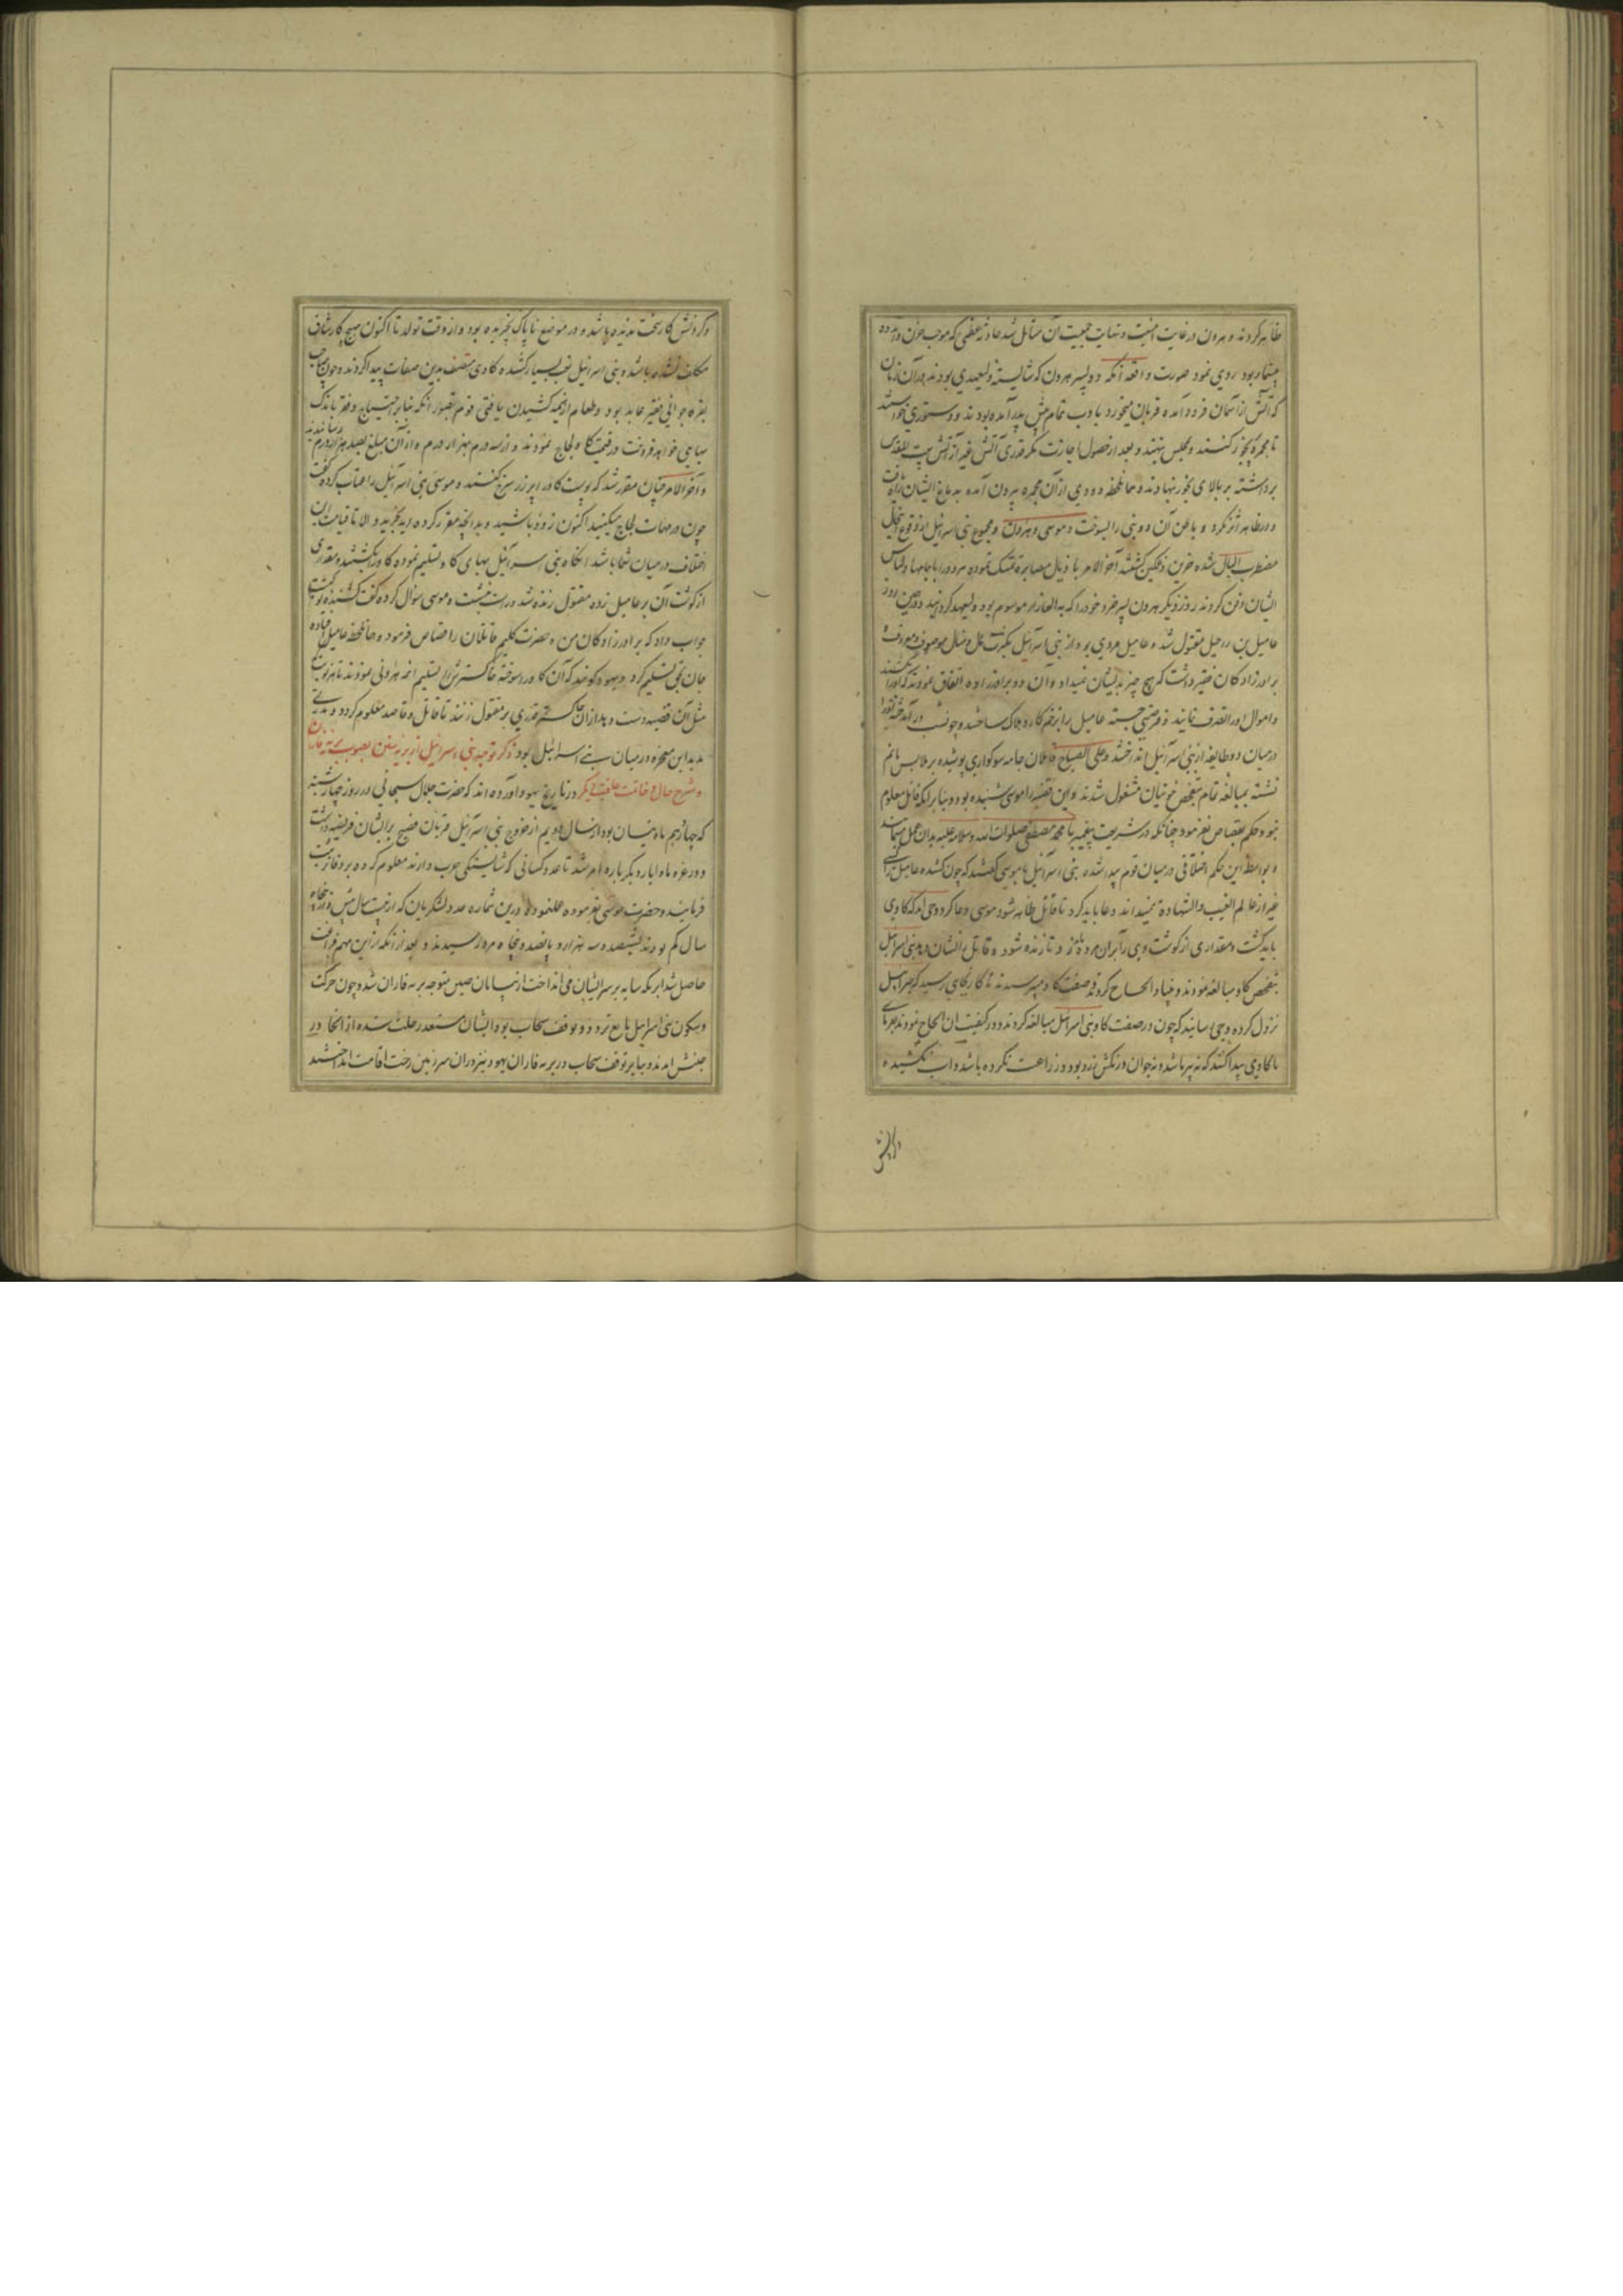 ظاهر کردند و هرون در غایت امنیت و نهایت جمعیت آن متأمل شد حادثه عظمی که موجب حزن و اندوه
بیشمار بود روی نمود صورت واقعه آنکه دو پسر هرون که شایسته ولیعهدی بودند در آن زمان
که آتش از آسمان فرود آمده قربان میخورد با دب تمام پیش پدر آمده بودند و دستوری خواستند
تا مجمره بخور کنند و مجلس نهند و بعد از حصول اجازت مگر قدری آتش غیر از آتش بیت المقدس
برداشته بر بالای بخور نهادند و همان لحظه دودی از آن مجمره بیرون آمده بدماغ ایشان راه یافت
و در ظاهر اثر نکرد و باطن آن دو بنی را بسوخت و موسی و هرون و مجموع بنی اسرائیل از وقوع این حال
مضطرب البال شده حزین و غمگین گشتند آخر الامر با ذیال مصابره تمسک نموده هر دو را با جامها و لباس
ایشان دفن کردند روز دیگر هرون پسر خرد خود را که به العازار موسوم بود ولیعهد کردند و در همین روز
عامیل بن رحیل مقتول شد و عامیل مردی بود از بنی اسرائیل بکثرت مال و منال موصوف و معروف
برادرزادگان فقیر داشت که هیچ چیز بدیشان نمیداد و آن دو برادرزاده اتفاق نمودند که او را بکشند
و اموال او را تصرف نمایند و فرصتی جسته عامیل را بزخم کارد هلاک ساختند و چون شب در آمد جثه او را
در میان دو طایفه از بنی اسرائیل انداختند و علی الصباح قاتلان جامه سوگواری پوشیده بر پلاس ماتم
نشسته بمبالغه تمام بتفحص خونیان مشغول شدند و این قضیه را موسی شنیده بود و بنا بر آنکه قاتل معلوم
نبود حکم بقصاص نفرمود چنانکه در شریعت پیغمبر ما محمد مصطفی صلوات الله و سلامه علیه بدان عمل مینمایند
و بواسطه این حکم اختلافی در میان قوم پیدا شده بنی اسرائیل با موسی گفتند که چون کشنده عامیل را کسی
غیر از عالم الغیب والشهادة نمیداند دعا باید کرد تا قاتل ظاهر شود موسی دعا کرد وحی آمد که گاوی
باید کشت و مقداری از گوشت وی را بران مرده زد تا زنده شود و قاتل را نشان دهد بنی اسرائیل
بتفحص گاو مبالغه نمودند و بنیاد الحاح کردند و صفت گاو میپرسیدند تا کار بجایی رسید که جبرائیل
نزول کرده وحی رسانید که چون در صفت گاو بنی اسرائیل مبالغه کردند و در کیفیت آن الحاح نمودند بفرمای
تا گاوی پیدا کنند که نه پیر باشد و نه جوان و رنگش زرد بود و زراعت نکرده باشد و آب نکشیده
و گردنش
و گردنش کار سخت ندیده باشد و در موضع ناپاک نچریده بود و از وقت تولد تا اکنون هیچ کار شاق
مکلف نشده باشد و بنی اسرائیل تعب بسیار کشیده گاوی متصف بدین صفات پیدا کردند و چون صاحب
بقره جوانی فقیر عابد بود و طعام از یتیمه کشیدن یافتی قوم بتصور آنکه بنا بر احتیاج و فقر باندک
بهایی خواهد فروخت در قیمت گاو لجاج نمودند و از سه درم بهزار درم و از آن مبلغ بصد هزار درم رسانیدند
و آخر الامر چنان مقرر شد که پوست گاو را پر زر سرخ کنند و موسی بنی اسرائیل را عتاب کرده گفت
چون در مهمات لجاج میکنید اکنون زود باشید و بدانچه مقرر کرده اید بخرید و الا تا قیامت این
اختلاف در میان شما باشد آنگاه بنی اسرائیل بهای گاو تسلیم نموده گاو را بکشتند و مقداری
از گوشت آن بر عامیل زده مقتول زنده شد و راست بنشست و موسی سؤال کرده گفت کشنده تو کیست
جواب داد که برادرزادگان من و حضرت کلیم قاتلان را قصاص فرمود و همان لحظه عامیل افتاده
جان بحق تسلیم کرد و یهود گویند که آن گاو را سوخته خاکسترش را تسلیم ائمه هارونی نمودند تا هر نوبت
مثل آن قضیه دست دهد ازان خاکستر قدری بر مقتول زنند تا قاتل و قاصد معلوم گردد و مدتی
مدید این معجزه در میان بنی اسرائیل بود ذکر توجه بنی اسرائیل از بریه سین بصوب بریه فاران
و شرح حال و خاتمت عاقبت یکدیگر در تاریخ یهود آورده اند که حضرت جلال سبحانی در روز چهارشنبه
که چهاردهم ماه نیسان بود از سال دویم از خروج بنی اسرائیل قربان فصیح بر ایشان فریضه داشت
و در غره ماه ایار دیگر باره امر شد تا عدد کسانی که شایستگی حرب دارند معلوم کرده بر دفاتر ثبت
فرمایند و حضرت موسی بفرموده عمل نموده درین شماره عدد لشکریان که از بیست سال بیش و از پنجاه
سال کم بودند بششصد و سه هزار و پانصد و پنجاه مرد رسیدند و بعد از آنکه ازین مهم فراغت
حاصل شد ابری که سایه بر سر ایشان می انداخت از بیابان سین متوجه بریه فاران شد و چون حرکت
و سکون بنی اسرائیل تابع تردد و توقف سحاب بود ایشان مستعد رحلت شده از انجا در
جنبش آمدند و بنا بر توقف سحاب در بریه فاران یهود نیز دران سرزمین رخت اقامت انداختند